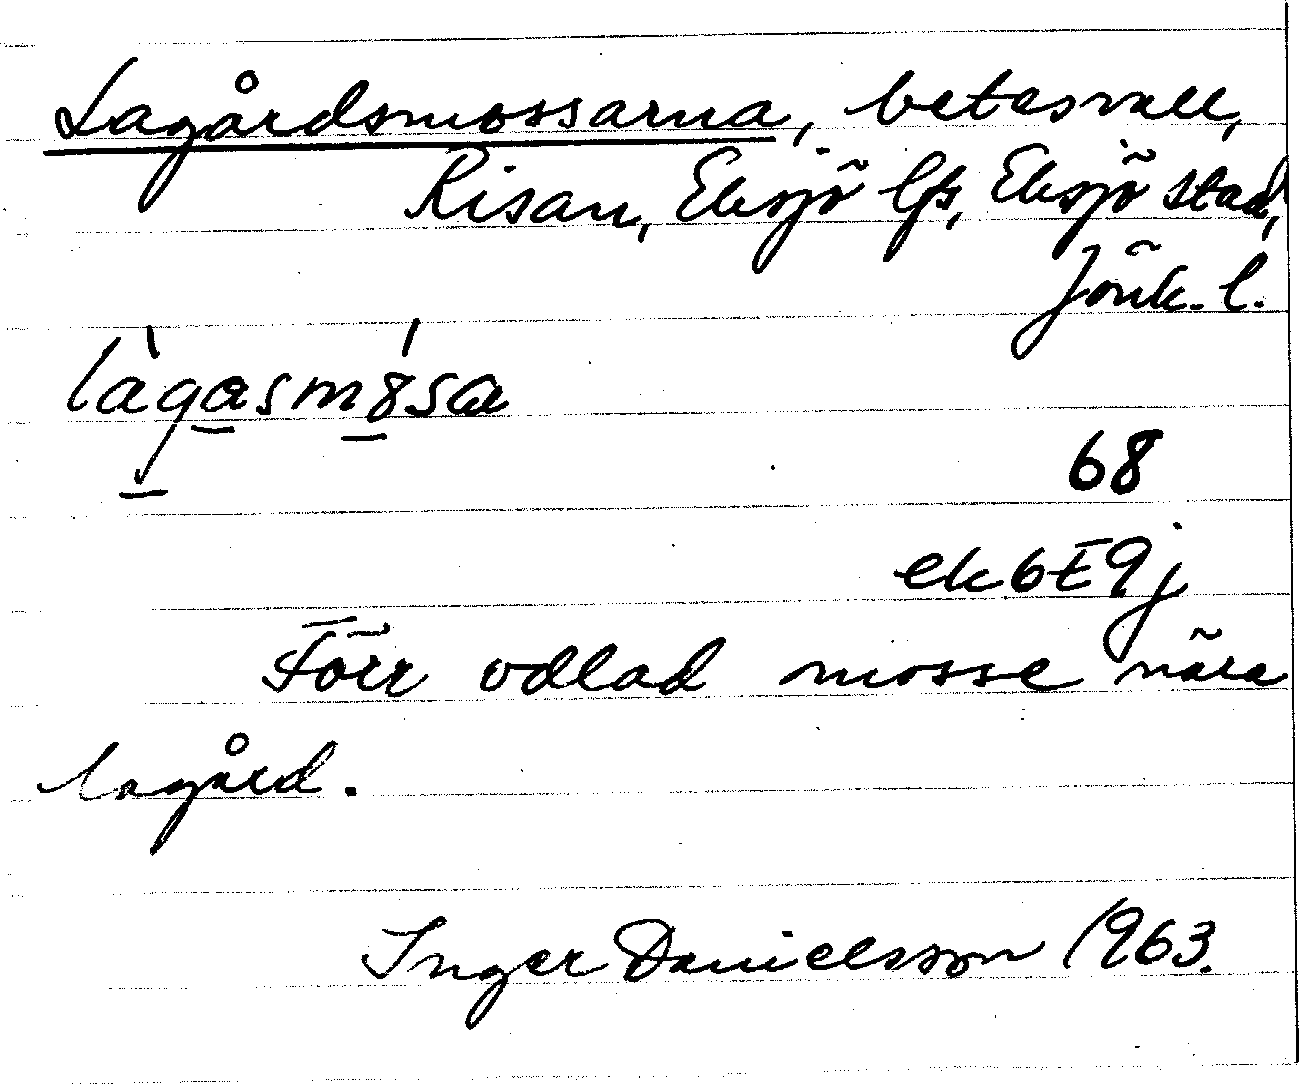 Lagårdsmossarna, betesvall,
Risan, Eksjö lfs, Eksjö stad,
Jönk. l.
làgasmósa
68
ek 6E9j
Förr odlad mosse nära
lagård.
Inger Danielsson 1963.